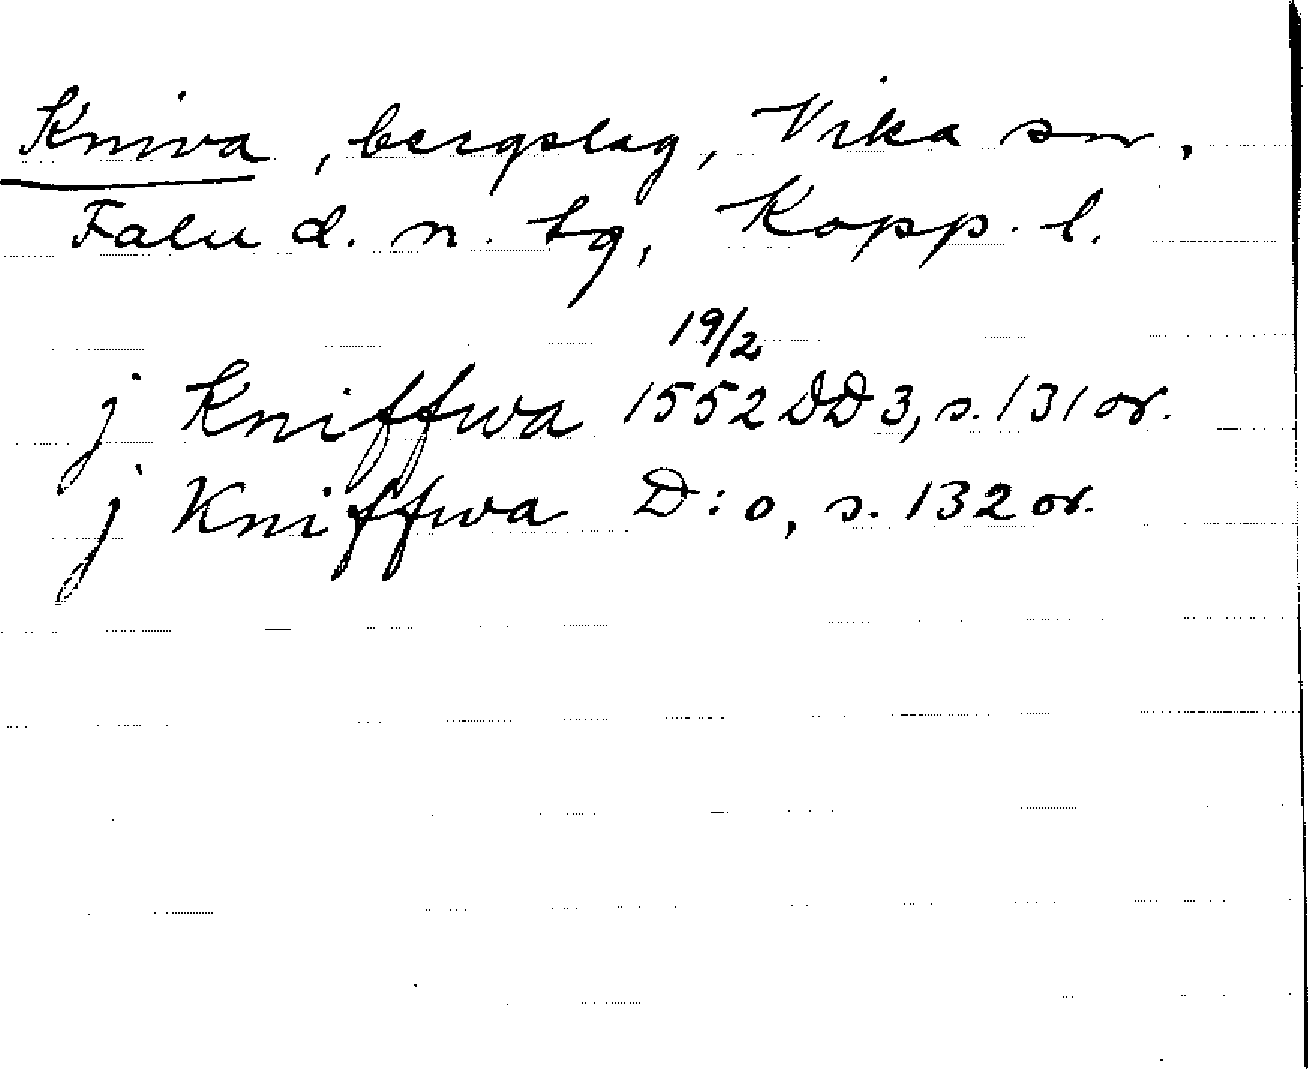 Kniva, bergslag, Vika sn,
Falu d. n. tg, Kopp. l.
19/2
j Kniffwa 1552 DD 3, s. 131 or.
j Kniffwa D:o, s. 132 or.